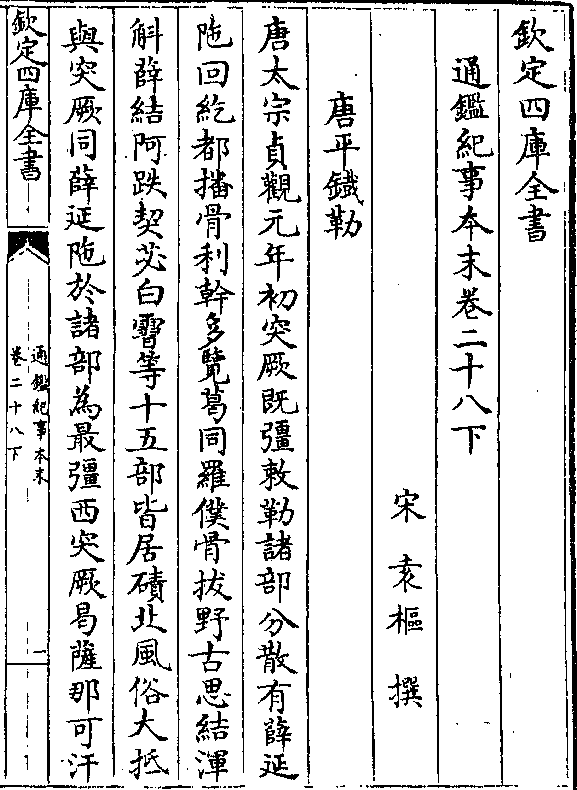 欽定四庫全書
通鑑紀事本末卷二十八下
宋 袁樞 撰
唐平鐵勒
唐太宗貞觀元年初突厥既彊敕勒諸部分散有薛延
陁回紇都播骨利幹多覽葛同羅僕骨拔野古思結渾
斛薛結阿跌契苾白霫等十五部皆居磧北風俗大抵
與突厥同薛延陁於諸部為最彊西突厥曷薩那可汗
欽定四庫全書
通鑑紀事本末
卷二十八下
一